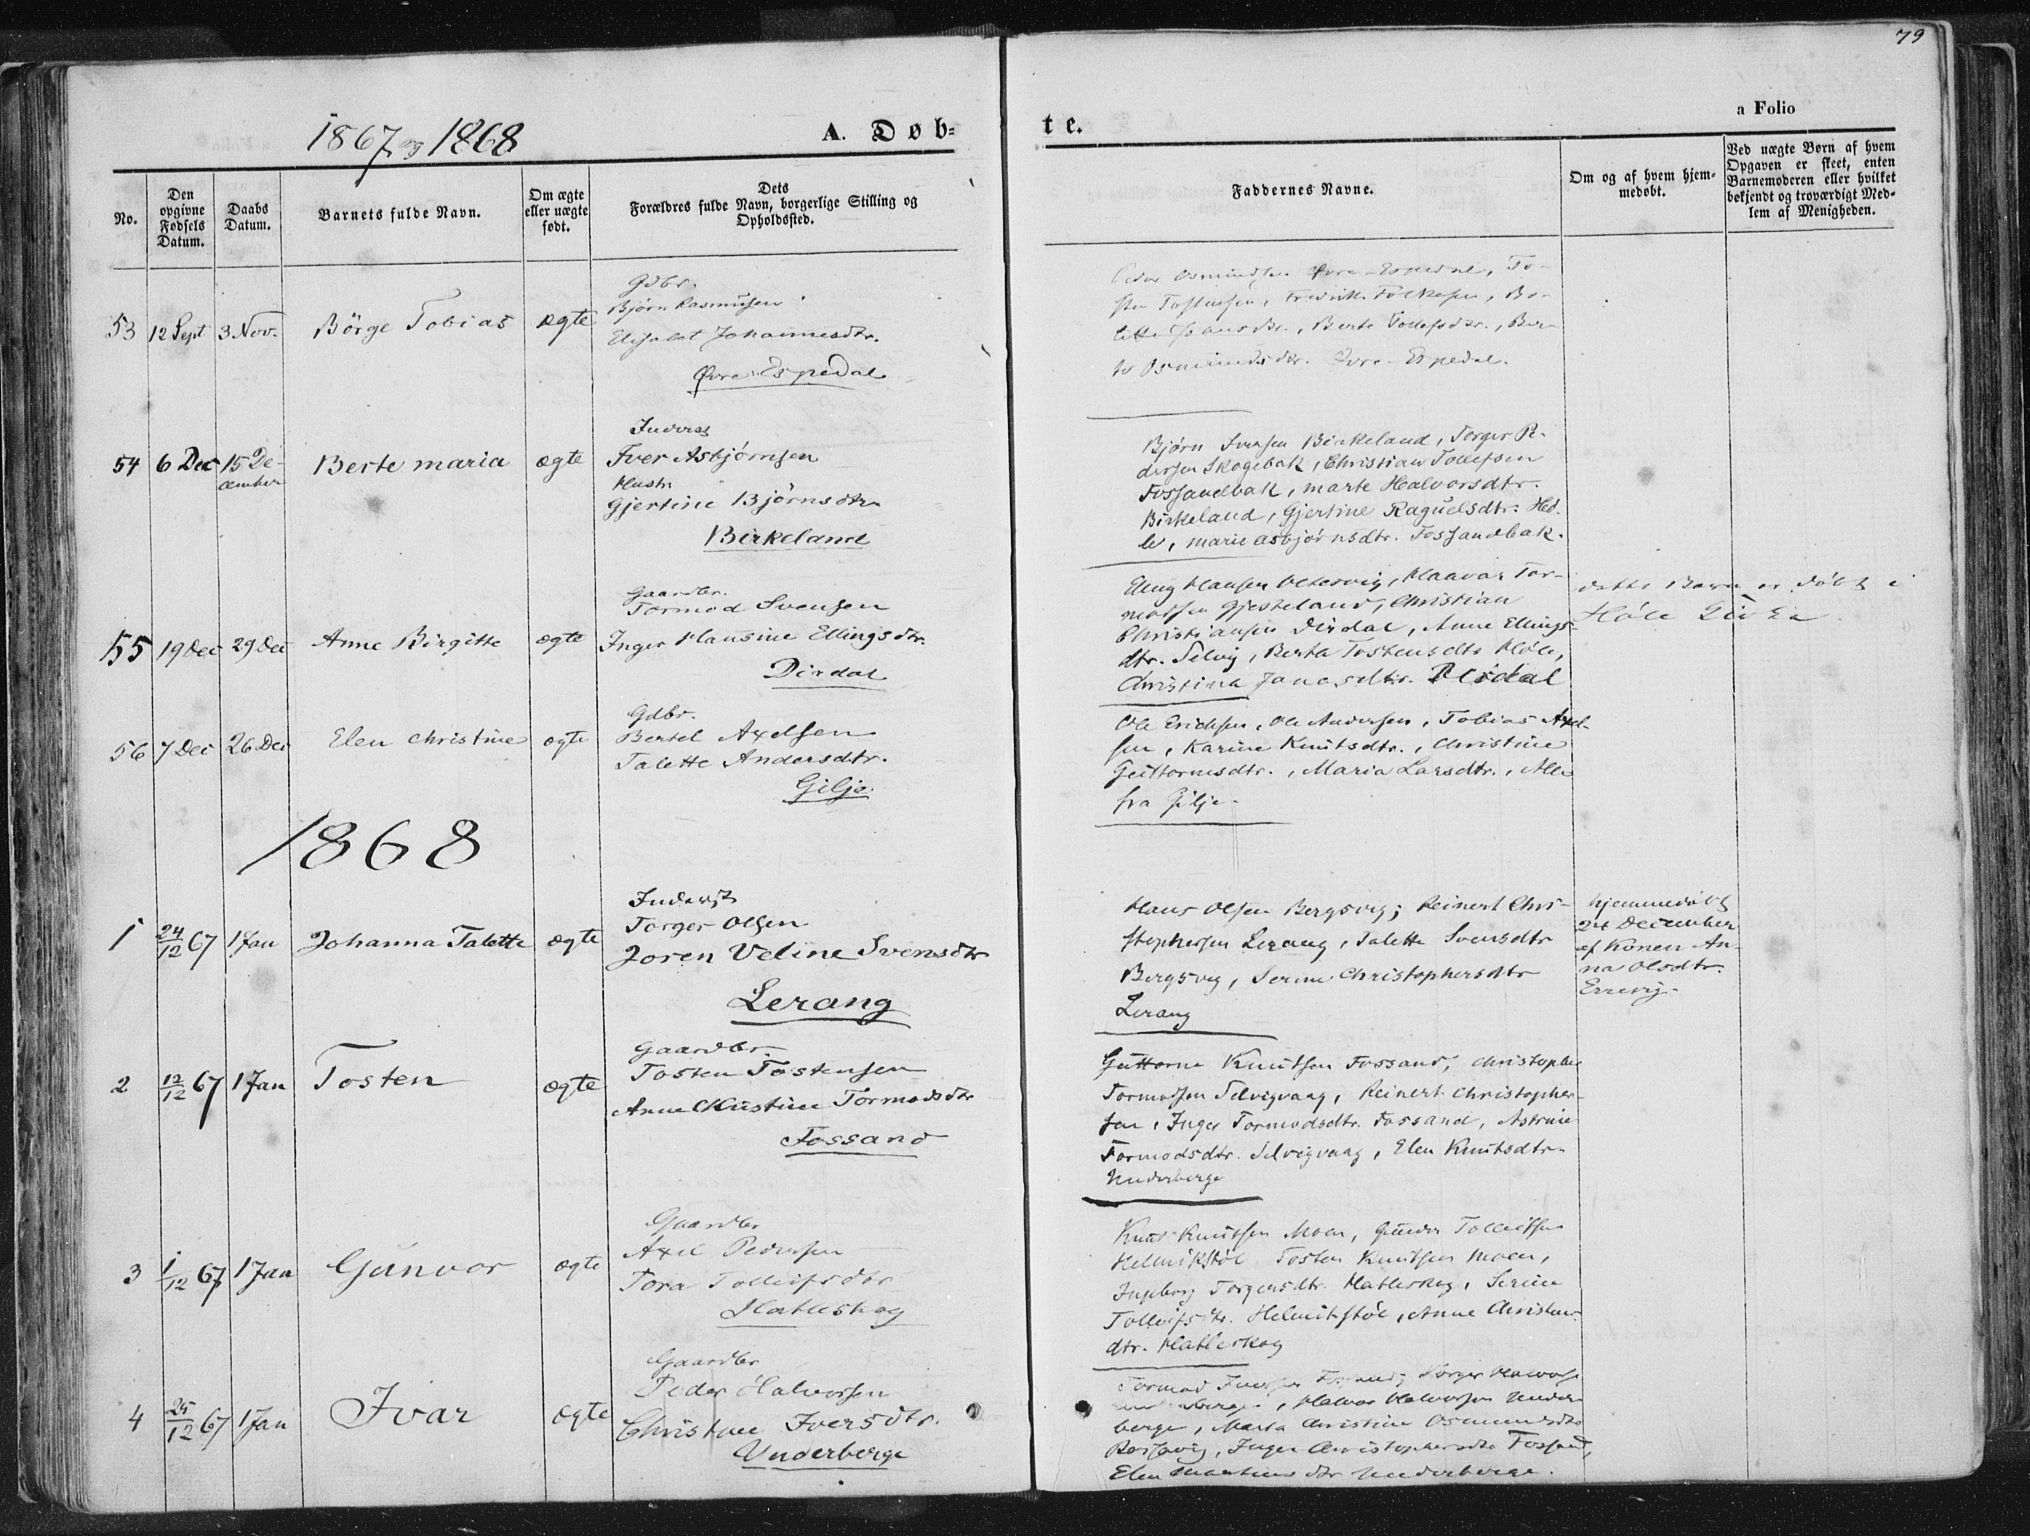 79
a Folio
1867 og 1868
A. Døb-
te.
No.
Den opgivne Fødsels Datum.
Daabs Datum.
Barnets fulde Navn.
Om ægte eller uægte født.
Dets Forældres fulde Navn, borgerlige Stilling og Opholdssted.
Faddernes Navne.
Om og af hvem hjemmedøbt.
Ved uægte Børn af hvem Opgaven er skeet, enten Barnemoderen eller hvilket bekjendt og troværdigt Medlem af Menigheden.
53 12 Sept 3 Nov. Børge Tobias ægte
Gdbr.
Bjørn Rasmusen
Elisabet Johannesdtr.
Øvre Espedal
Øvre-Espedal, To-
sten Tostensen, Fredrik Folkesen, Bo-
Berte Tollefsdtr., Ber-
te Osmundsdtr. Øvre-Espedal.
54 6 Dec 15 De-
cember
Berte Maria ægte
Inderst
Iver Asbjørnsen
Hustr.
Gjertine Bjørnsdtr
Birkeland
Bjørn Svensen Birkeland, Torger Pe-
dersen Skogebak, Christian Tollefsen
Fossandbak, Marte Halvorsdtr.
Birkeland, Gjertine Raguelsdtr. Hed-
le, Marie Asbjørnsdtr. Fossandbak.
55 19 Dec 29 Dec Anne Birgitte ægte
Gaardbr.
Tormod Svensen
Inger Hansine Ellingsdtr.
Dirdal
Elling Hansen Oltesvig, Haavar Tor-
modsen Gjesteland, Christian
Christiansen Dirdal, Anne Ellings-
dtr. Selvig, Berta Tostensdtr Høle,
Christina Jonasdtr. Dirdal
dette Barn er døbt i
Høle Kirke
56 7 Dec 26 Dec Elen Christine ægte
Gdbr.
Bertel Axelsen
Talette Andersdtr.
Gilje
Ole Erichsen, Ole Andersen, Tobias Axel-
sen, Karine Knutsdtr., Christine
Guttormsdtr., Maria Larsdtr., Alle
fra Gilje.
1868
1 24/12 67 1 Jan Johanna Talette ægte
Inderst
Torger Olsen
Joren Veline Svensdtr
Lerang
Hans Olsen Bergsvig, Reinert Chri-
stophersen Lerang, Talette Svensdtr
Bergsvig, Serine Christophersdtr
Lerang
hjemmedøbt
24 December
af Konen An-
na Olsdtr.
Errevig.
2 12/12 67 1 Jan Tosten ægte
Gaardbr.
Tosten Tostensen
Anne Kristine Tormodsdtr
Fossand
Guttorm Knutsen Fossand, Christopher
Tormodsen Selvigvaag, Reinert Christopher-
sen, Inger Tormodsdtr. Fossand, Astrine
Tormodsdtr. Selvigvaag, Elen Knutsdtr.
Underberge
3 1/12 67 1 Jan Gunvor ægte
Gaardbr
Axel Pedersen
Tora Tollefsdtr
Hatleskog
Knut Knutsen Moen, Gunder Tollefsen
Helmikstøl Tosten Knutsen Moen,
Ingeborg Torgersdtr. Hatleskog, Serine
Tollefsdtr. Helmikstøl, Anne Christens-
dtr. Hatleskog
4 25/12 67 1 Jan Ivar ægte
Gaardbr
Peder Halvorsen
Christine Iversdtr.
Underberge
Tormod Iversen Fossand, Torger Halvorse
Underberge, Halvor Halvorsen Under-
berge, Marta Christine Osmundsdtr
Rossavig, Inger Christophersdtr Fossand,
Elen Martine dtr Underberge.